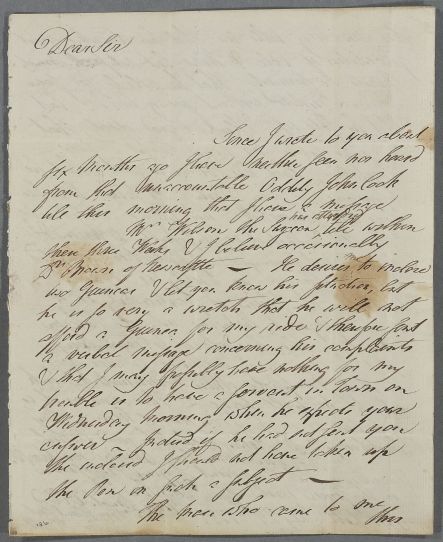 Dear Sir
Since I wrote to you about
six Months ago I have neither seen nor heard
from that unaccountable Oddity John Cook
till this morning that I have a message
his attending
Mr Wilson the Surgeon, till within
these three Weeks & I believe occasionally
Dr Brown of Newcastle — He desires me to inclose
two Guineas & let you know his situation, but
he is so very a wretch that he will not
afford a Guinea for my ride & therefore sent
a verbal message concerning his complaints
& that I may have nothing for my
trouble is to have a servant in Town on
Wednesday morning when he expects your
answer Indeed if he had not sent you
the inclosed I should not have taken up
the Pen on such a subject —
The man who came to me
thus